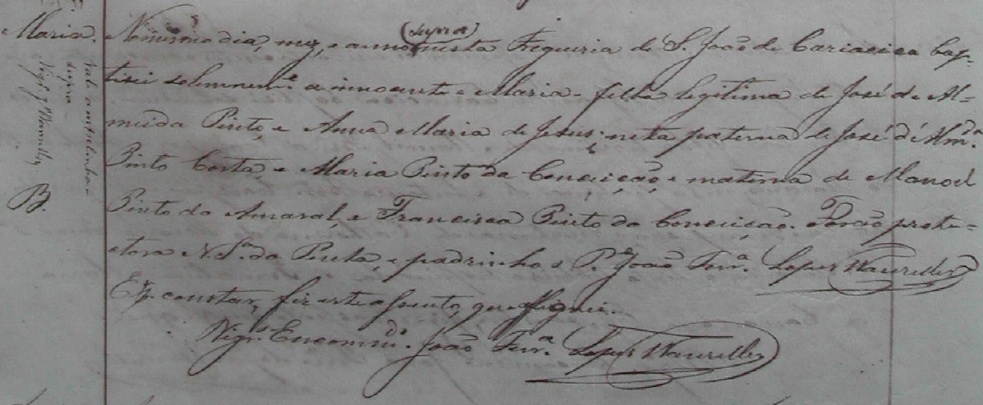 (supra)
Maria. No mesmo dia, mez, e anno, nesta Freguezia de S. João de Cariacica bap-
tisei solemnem.e a innocente Maria - filha legitima de José de Al-
meida Pinto, e Anna Maria de Jesus; neta paterna de José d'Alm.da
Pinto Costa, e Maria Pinto da Conceição, e materna de Manoel
Pinto do Amaral, e Francisca Pinto da Conceição. Forão prote-
ctora N. Sr.a da Penha, e padrinho o P.e João Ferr.a Lopes Wanzeller
E p.a constar, fiz este assento, que assignei.
Vigr.o Encommd.o João Ferr.a Lopes Wanzeller
B.